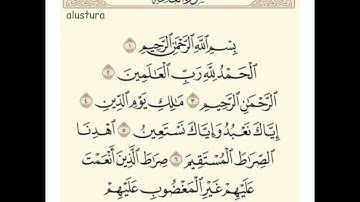 alustura
بِسْمِ ٱللَّهِ ٱلرَّحْمَٰنِ ٱلرَّحِيمِ ١
ٱلْحَمْدُ لِلَّهِ رَبِّ ٱلْعَٰلَمِينَ ٢
ٱلرَّحْمَٰنِ ٱلرَّحِيمِ ٣ مَٰلِكِ يَوْمِ ٱلدِّينِ ٤
إِيَّاكَ نَعْبُدُ وَإِيَّاكَ نَسْتَعِينُ ٥ ٱهْدِنَا
ٱلصِّرَٰطَ ٱلْمُسْتَقِيمَ ٦ صِرَٰطَ ٱلَّذِينَ أَنْعَمْتَ
عَلَيْهِمْ غَيْرِ ٱلْمَغْضُوبِ عَلَيْهِمْ